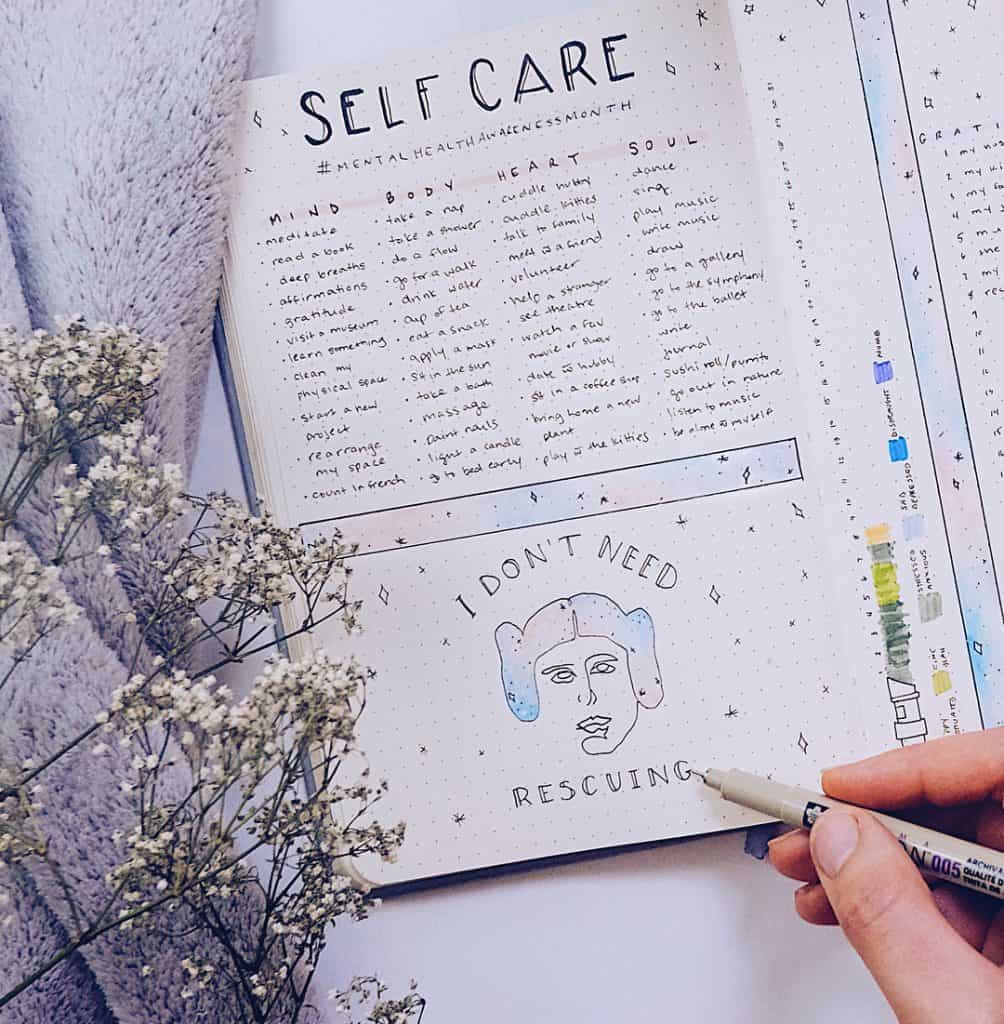 SELF CARE
#MENTALHEALTHAWARENESSMONTH
MIND
• meditate
• read a book
• deep breaths
• affirmations
• gratitude
• visit a museum
• learn something
• clean my
physical space
• start a new
project
• rearrange
my space
• count in french
BODY
• take a nap
• take a shower
• do a flow
• go for a walk
• drink water
• cup of tea
• eat a snack
• apply a mask
• sit in the sun
• take a bath
• massage
• paint nails
• light a candle
• go to bed early
HEART
• cuddle hubby
• cuddle kitties
• talk to family
• meet w a friend
• volunteer
• help a stranger
• see theatre
• watch a fav
movie or show
• date w hubby
• sit in a coffee shop
• bring home a new
plant
• play w the kitties
SOUL
• dance
• sing
• play music
• write music
• draw
• go to a gallery
• go to the symphony
• go to the ballet
• write
• journal
• sushi roll/purrito
• go out in nature
• listen to music
• be alone w myself
I DON'T NEED
RESCUING
NUMB
SAD
DEPRESSED
STRESSED
ANXIOUS
GRATI
1 my
2 my
3 my
4 my
5
6
7 my
8
9
10
005
ARCHIVA
QUALITÉ D